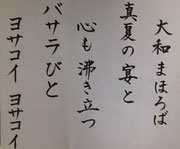 大和まほろば
真夏の宴と
心も沸き立つ
バサラびと
ヨサコイ ヨサコイ